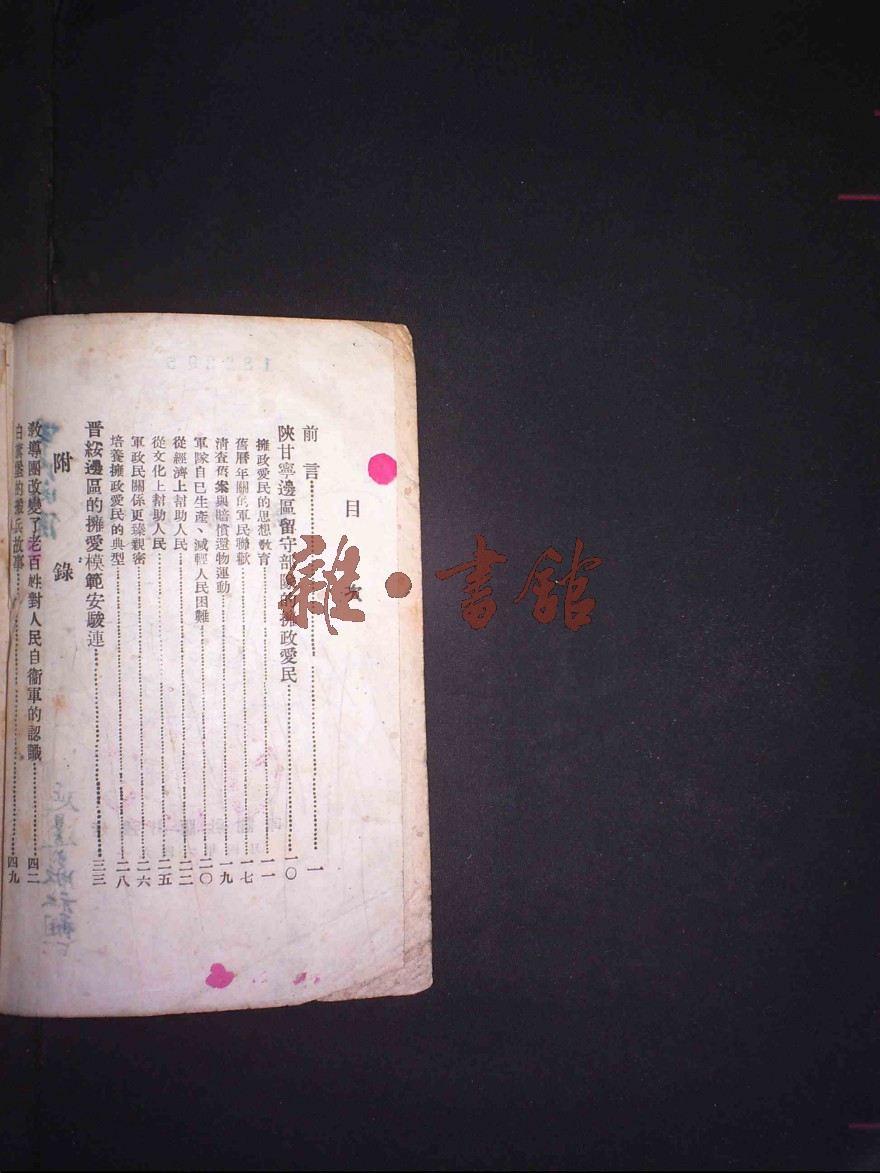 目次
前言……一
陝甘寧邊區留守部隊的擁政愛民……一〇
擁政愛民的思想教育……一一
舊曆年關的軍民聯歡……一七
清查舊案與賠償還物運動……一九
軍隊自已生產、減輕人民困難……二〇
從經濟上幫助人民……二二
從文化上幫助人民……二五
軍政民關係更臻親密……二六
培養擁政愛民的典型……二八
晋綏邊區的擁愛模範安駿連……三三
附錄
教導團改變了老百姓對人民自衞軍的認識……四二
的搬兵故事……四九
雜·書舘